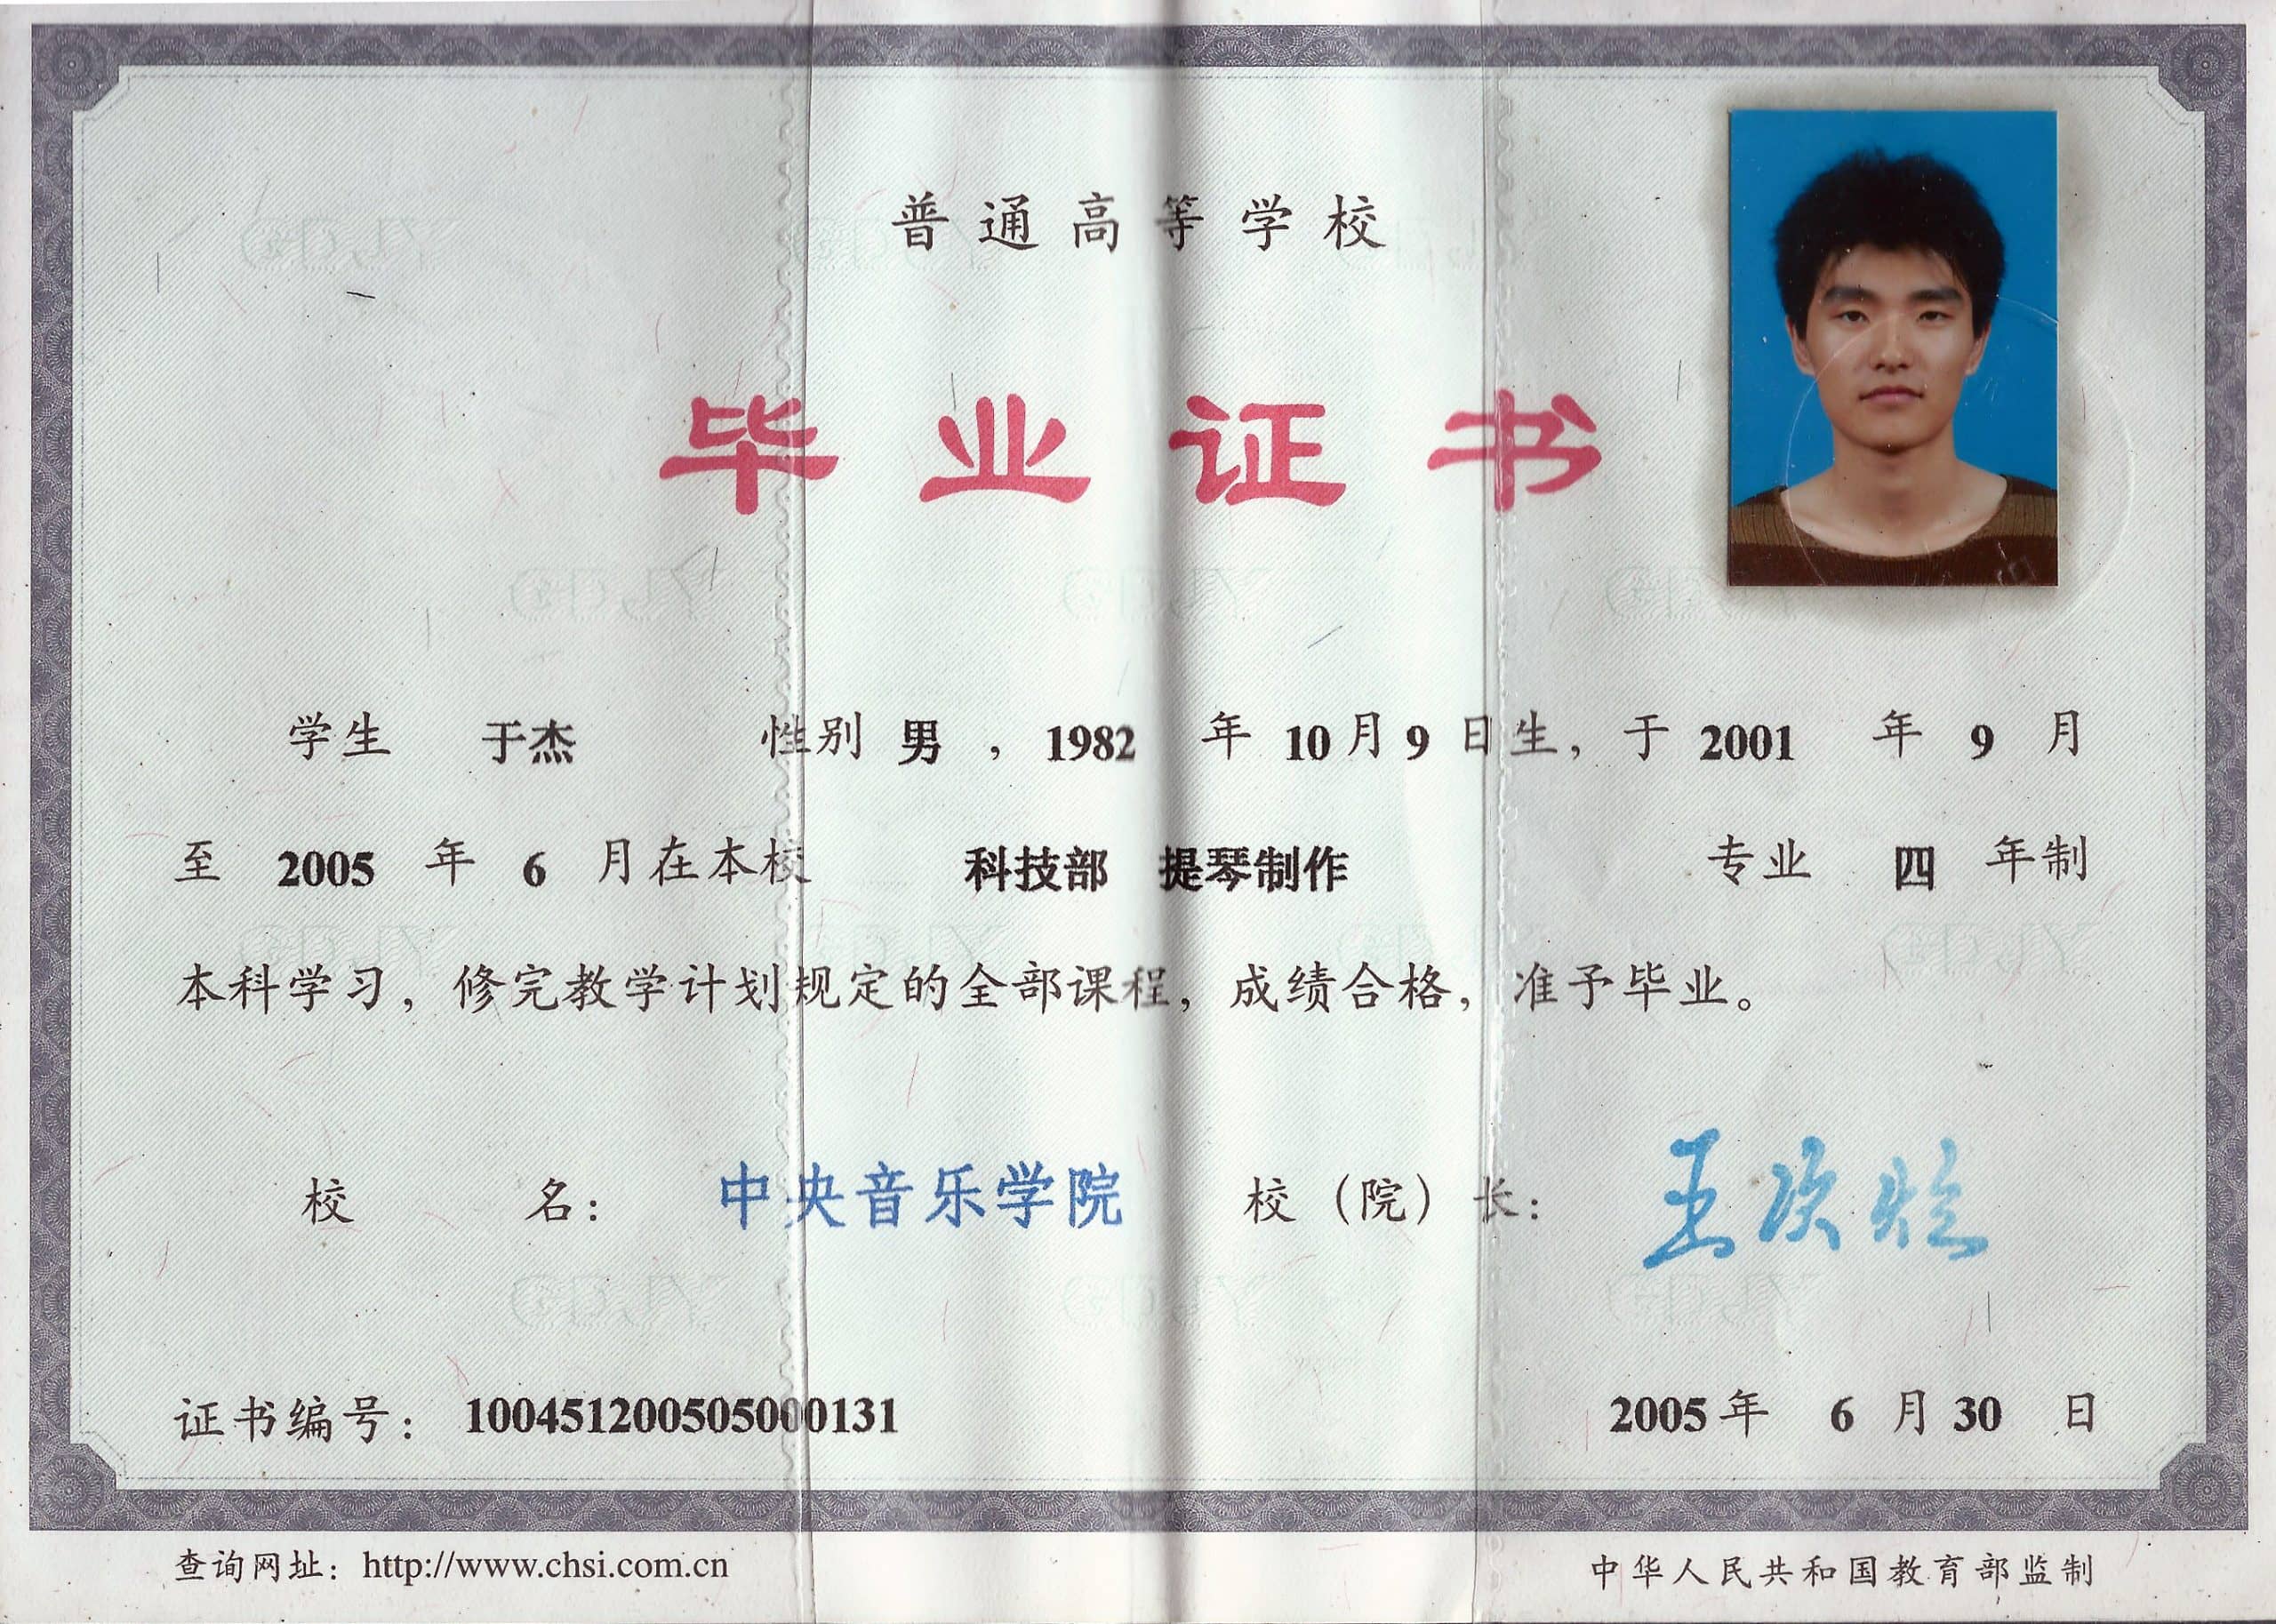 普通高等学校
毕业证书
学生 于杰 性别 男 ，1982 年 10 月 9 日生，于 2001 年 9 月
至 2005 年 6 月在本校 科技部 提琴制作 专业 四 年制
本科学习，修完教学计划规定的全部课程，成绩合格，准予毕业。
校 名： 中央音乐学院 校（院）长： 王次炤
证书编号： 100451200505000131 2005 年 6 月 30 日
查询网址：http://www.chsi.com.cn 中华人民共和国教育部监制